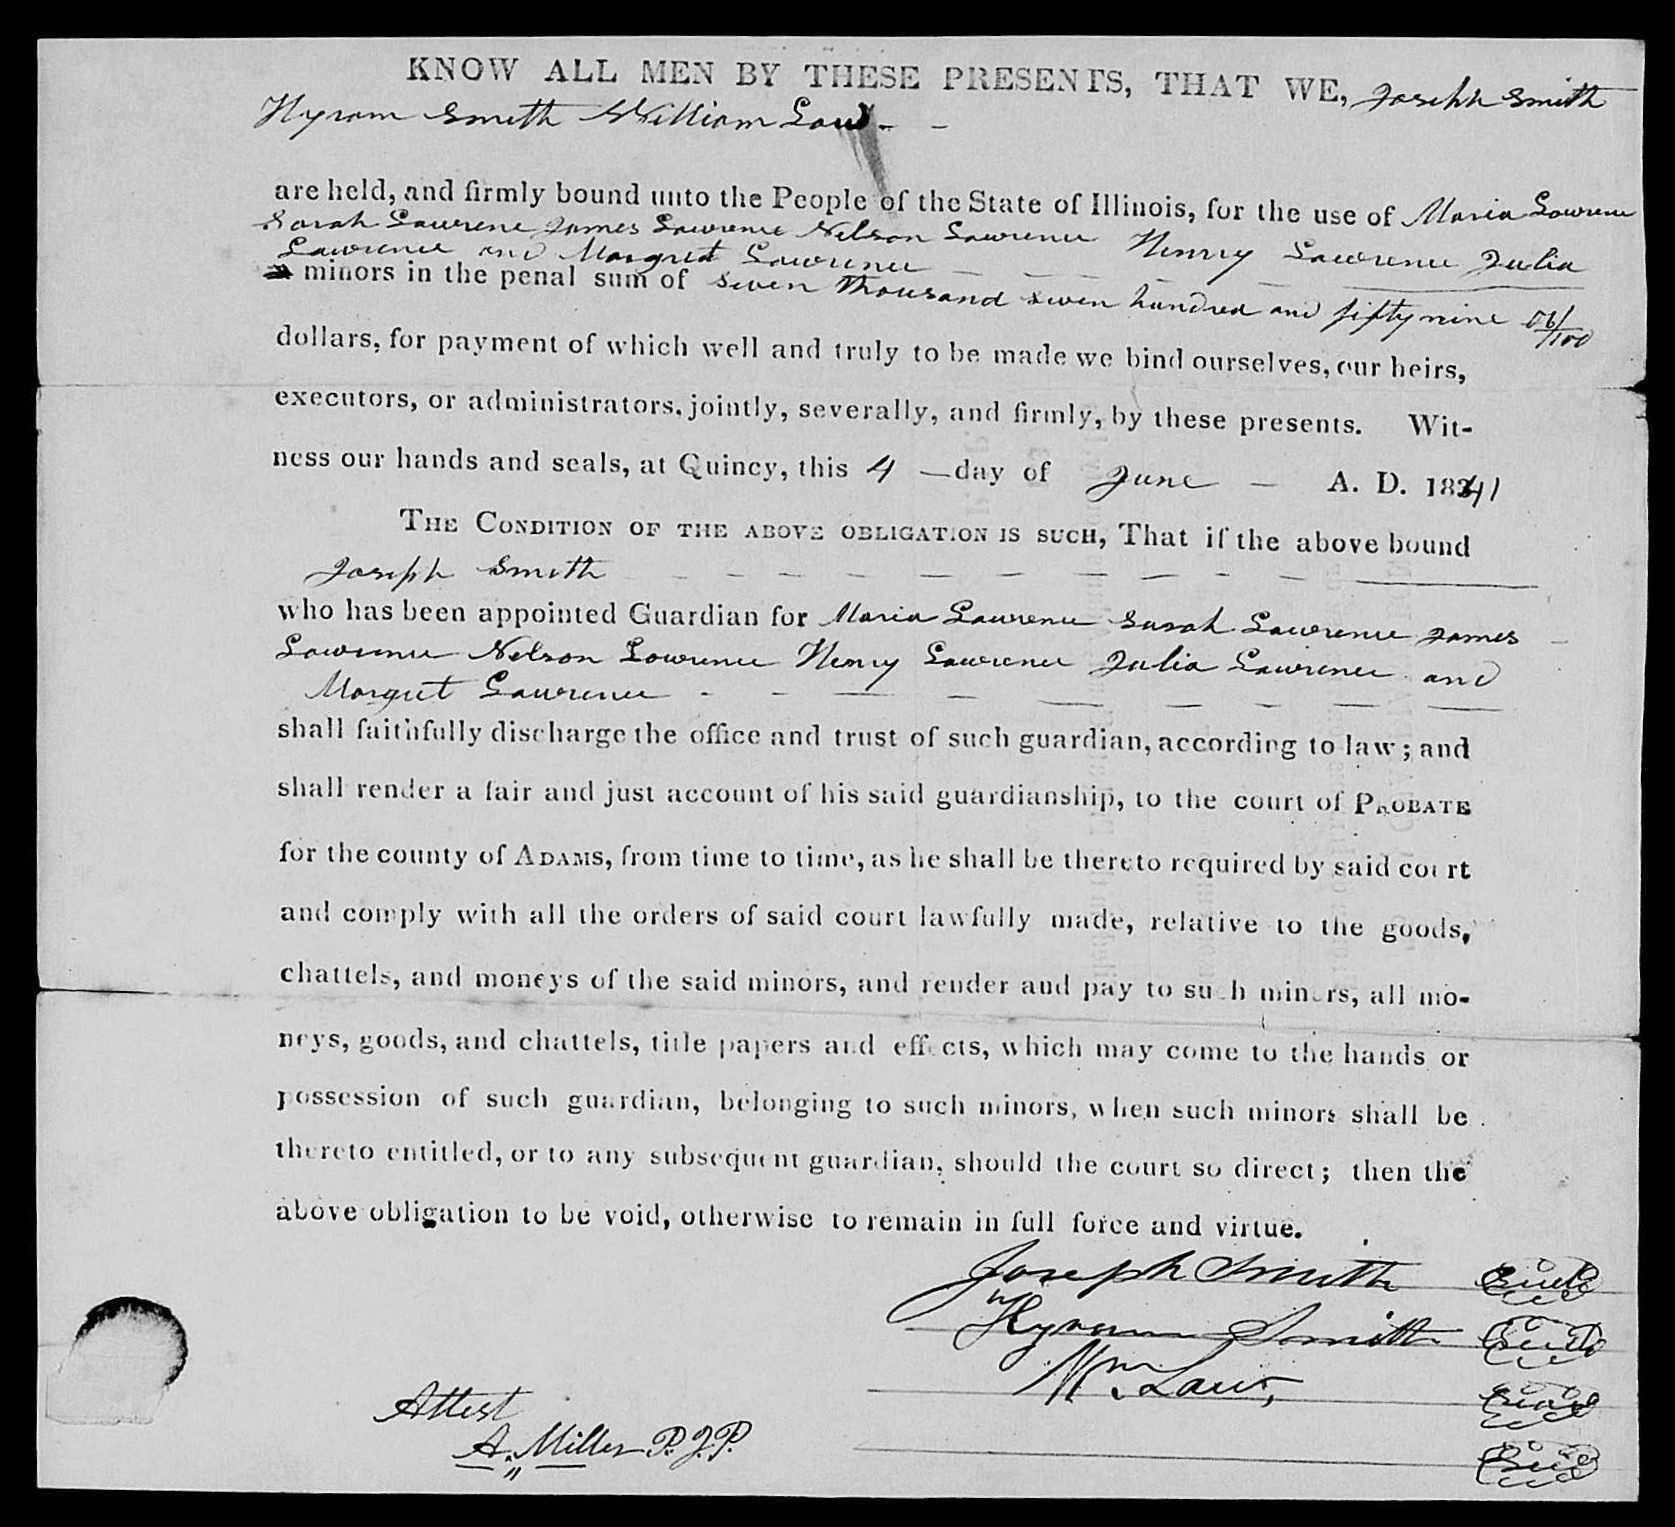 KNOW ALL MEN BY THESE PRESENTS, THAT WE, Joseph Smith
Hyrom Smith William Law - -
are held, and firmly bound unto the People of the State of Illinois, for the use of Maria Lawrence
Sarah Lawrence James Lawrence Nelson Lawrence Henry Lawrence Julia
Lawrence and Margret Lawrence
minors in the penal sum of seven thousand seven hundred and fifty nine 06/100
dollars, for payment of which well and truly to be made we bind ourselves, our heirs,
executors, or administrators, jointly, severally, and firmly, by these presents. Wit-
ness our hands and seals, at Quincy, this 4 — day of June — A. D. 1841
THE CONDITION OF THE ABOVE OBLIGATION IS SUCH, That if the above bound
Joseph Smith
who has been appointed Guardian for Maria Lawrence Sarah Lawrence James
Lawrence Nelson Lawrence Henry Lawrence Julia Lawrence and
Margret Lawrence
shall faithfully discharge the office and trust of such guardian, according to law; and
shall render a fair and just account of his said guardianship, to the court of PROBATE
for the county of ADAMS, from time to time, as he shall be thereto required by said court
and comply with all the orders of said court lawfully made, relative to the goods,
chattels, and moneys of the said minors, and render and pay to such minors, all mo-
neys, goods, and chattels, title papers and effects, which may come to the hands or
possession of such guardian, belonging to such minors, when such minors shall be
thereto entitled, or to any subsequent guardian, should the court so direct; then the
above obligation to be void, otherwise to remain in full force and virtue.
Joseph Smith Seal
Hyrum Smith Seal
Wm. Law, Seal
Attest
A. Miller P.J.P. Seal